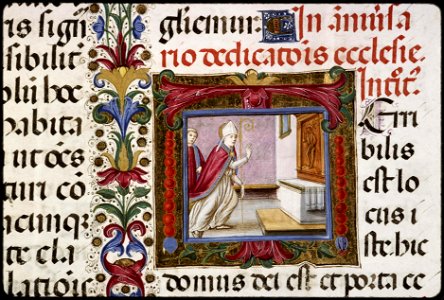 ris sign
sibilit
habita
ut oēs
turi cō
gliemur.
In anniv̄sa
rio dedicatōis ecclesie.
Introit̄.
Erri
bilis
est lo
cus i
ste. hic
domus dei est et porta ce